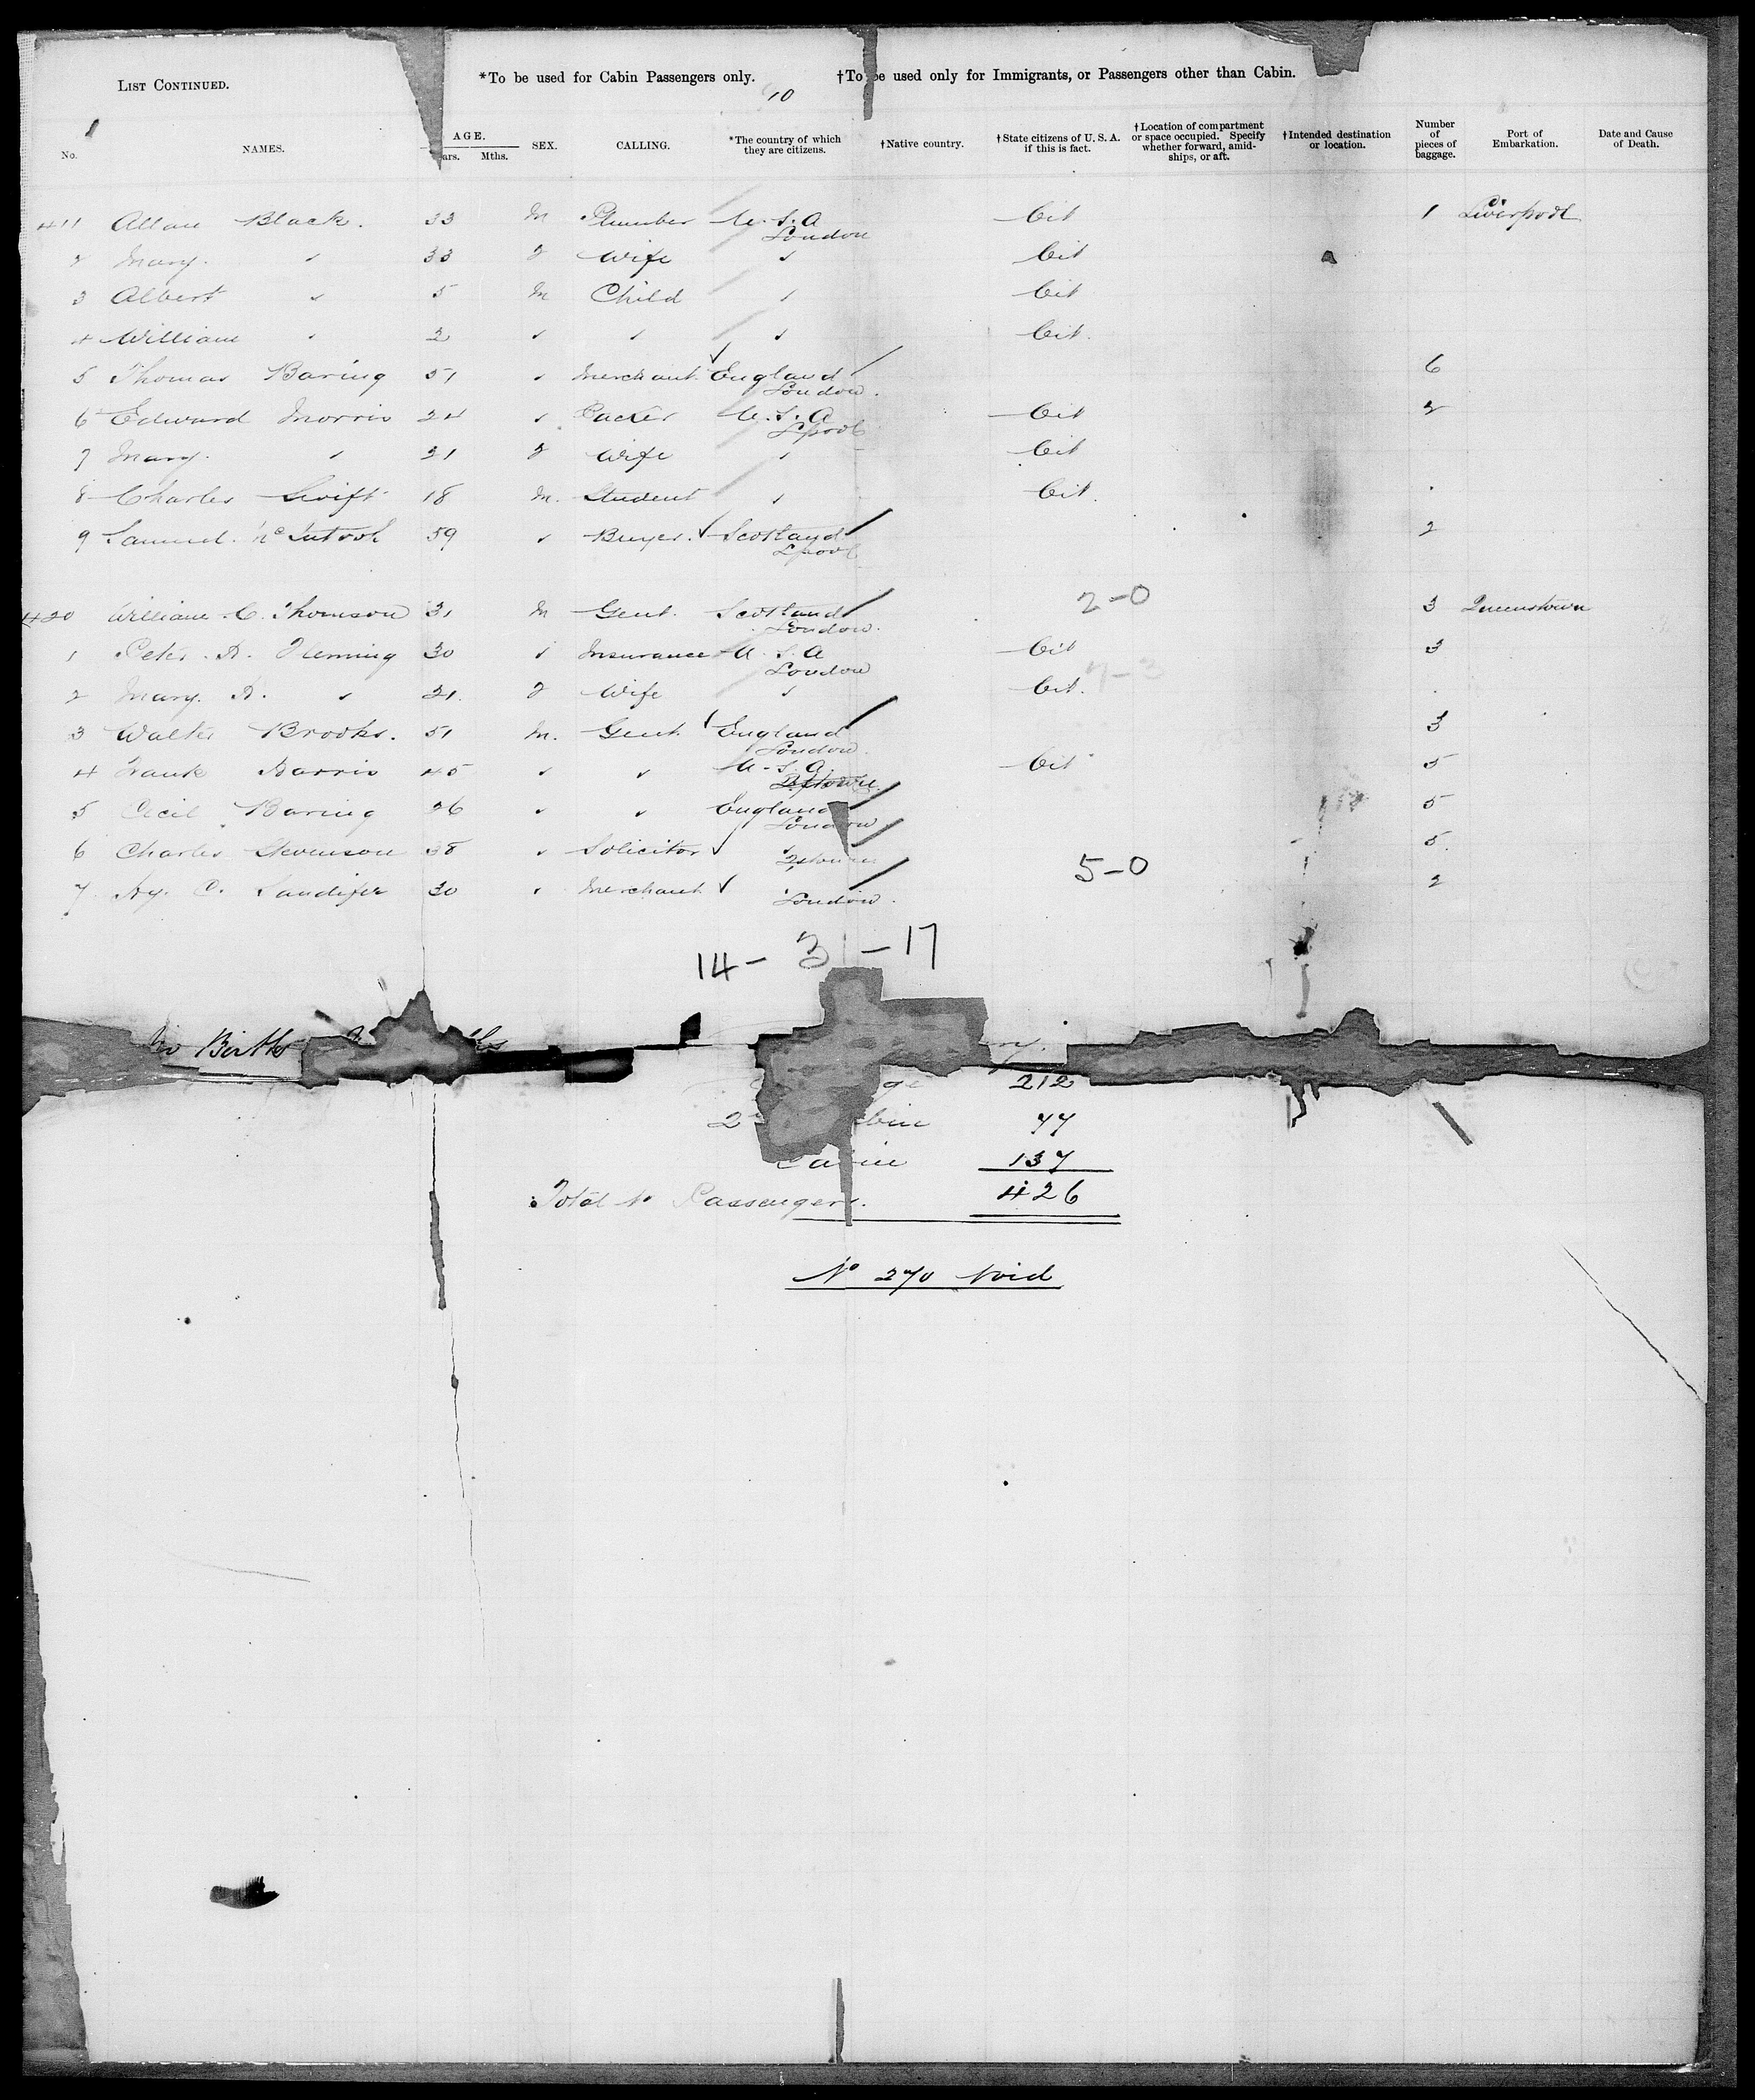 LIST CONTINUED. *To be used for Cabin Passengers only. †To be used only for Immigrants, or Passengers other than Cabin.
10
No. NAMES. AGE. ars. Mths. SEX. CALLING. *The country of which they are citizens. †Native country. †State citizens of U. S. A. if this is fact. †Location of compartment or space occupied. Specify whether forward, amidships, or aft. †Intended destination or location. Number of pieces of baggage. Port of Embarkation. Date and Cause of Death.
411 Allan Black. 33 M Plumber U.S.A London Cit 1 Liverpool
2 Mary. " 33 F Wife " Cit
3 Albert " 5 M Child " Cit
4 William " 2 " " " Cit.
5 Thomas Baring 51 " Merchant England London. 6
6 Edward Morris 24 " Packer U.S.A L'pool Cit 2
7 Mary. " 21 F Wife " Cit
8 Charles Swift 18 M. Student " Cit.
9 Samuel McIntosh 59 " Buyer. Scotland L'pool 2
420 William C. Thomson 31 M Gent. Scotland London. 2-0 3 Queenstown
1 Peter A. Fleming 30 " Insurance U.S.A London Cit 3
2 Mary. A. " 31. F Wife " Cit.
3 Walter Brooks. 51 M. Gent. England London. 3
4 Frank Harris 45 " " U.S.A. Q'town Cit 5
5 Cecil Baring 26 " " England London. 5
6 Charles Stevenson 38 " Solicitor " Q'town 5.
7 Hy. C. Sandifer 30 " Merchant " London. 5-0 2
14- 31 -17
No Births
212
2 bin 77
Cabin 137
Total No Passengers. 426
No 270 Void